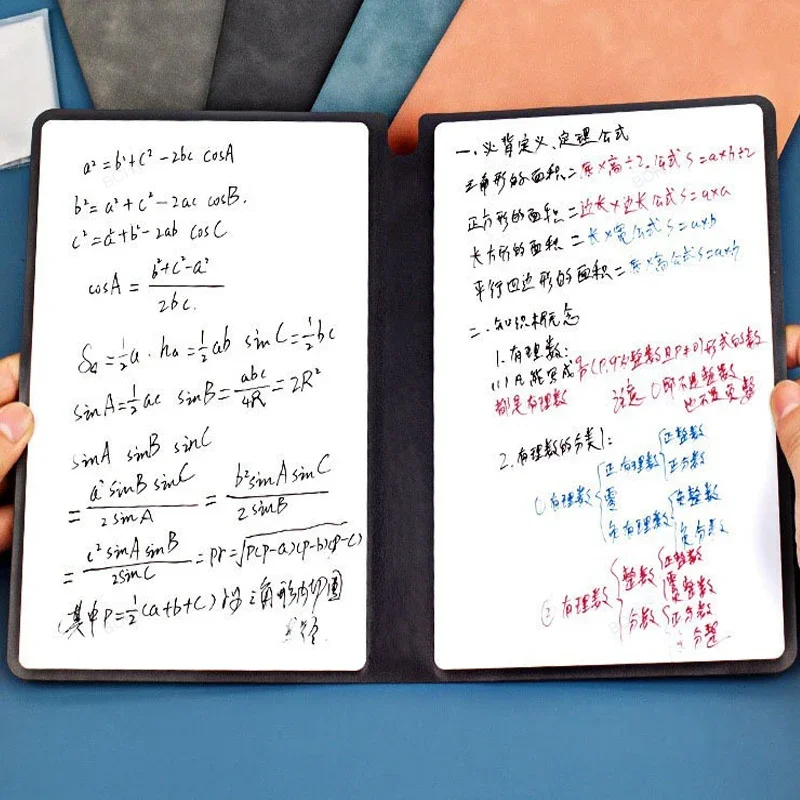 a² = b² + c² - 2bc cosA
b² = a² + c² - 2ac cosB.
c² = a² + b² - 2ab cosC
cosA = (b² + c² - a²) / 2bc.
S△ = ½a · ha = ½ab sinC = ½bc
sinA = ½ac sinB = abc/4R = 2R²
sinA sinB sinC
= a² sinB sinC / 2sinA = b² sinA sinC / 2sinB
= c² sinA sinB / 2sinC = pr = √p(p-a)(p-b)(p-c)
(其中 P = ½(a+b+c) r为三角形内切圆
半径
一、必背定义、定理公式
三角形的面积=底×高÷2.公式S=a×h÷2
正方形的面积=边长×边长公式S=a×a
长方形的面积=长×宽公式S=a×b
平行四边形的面积=底×高公式S=a×h
二、知识本概念
1.有理数:
(1)凡能写成q/p(P,q为整数且P≠0)形式的数
都是有理数 注意 0即不是整数
也不是负整
2.有理数的分类1:
①有理数
正有理数
正整数
正分数
零
负有理数
负整数
负分数
②有理数
整数
正整数
零
负整数
分数
正分数